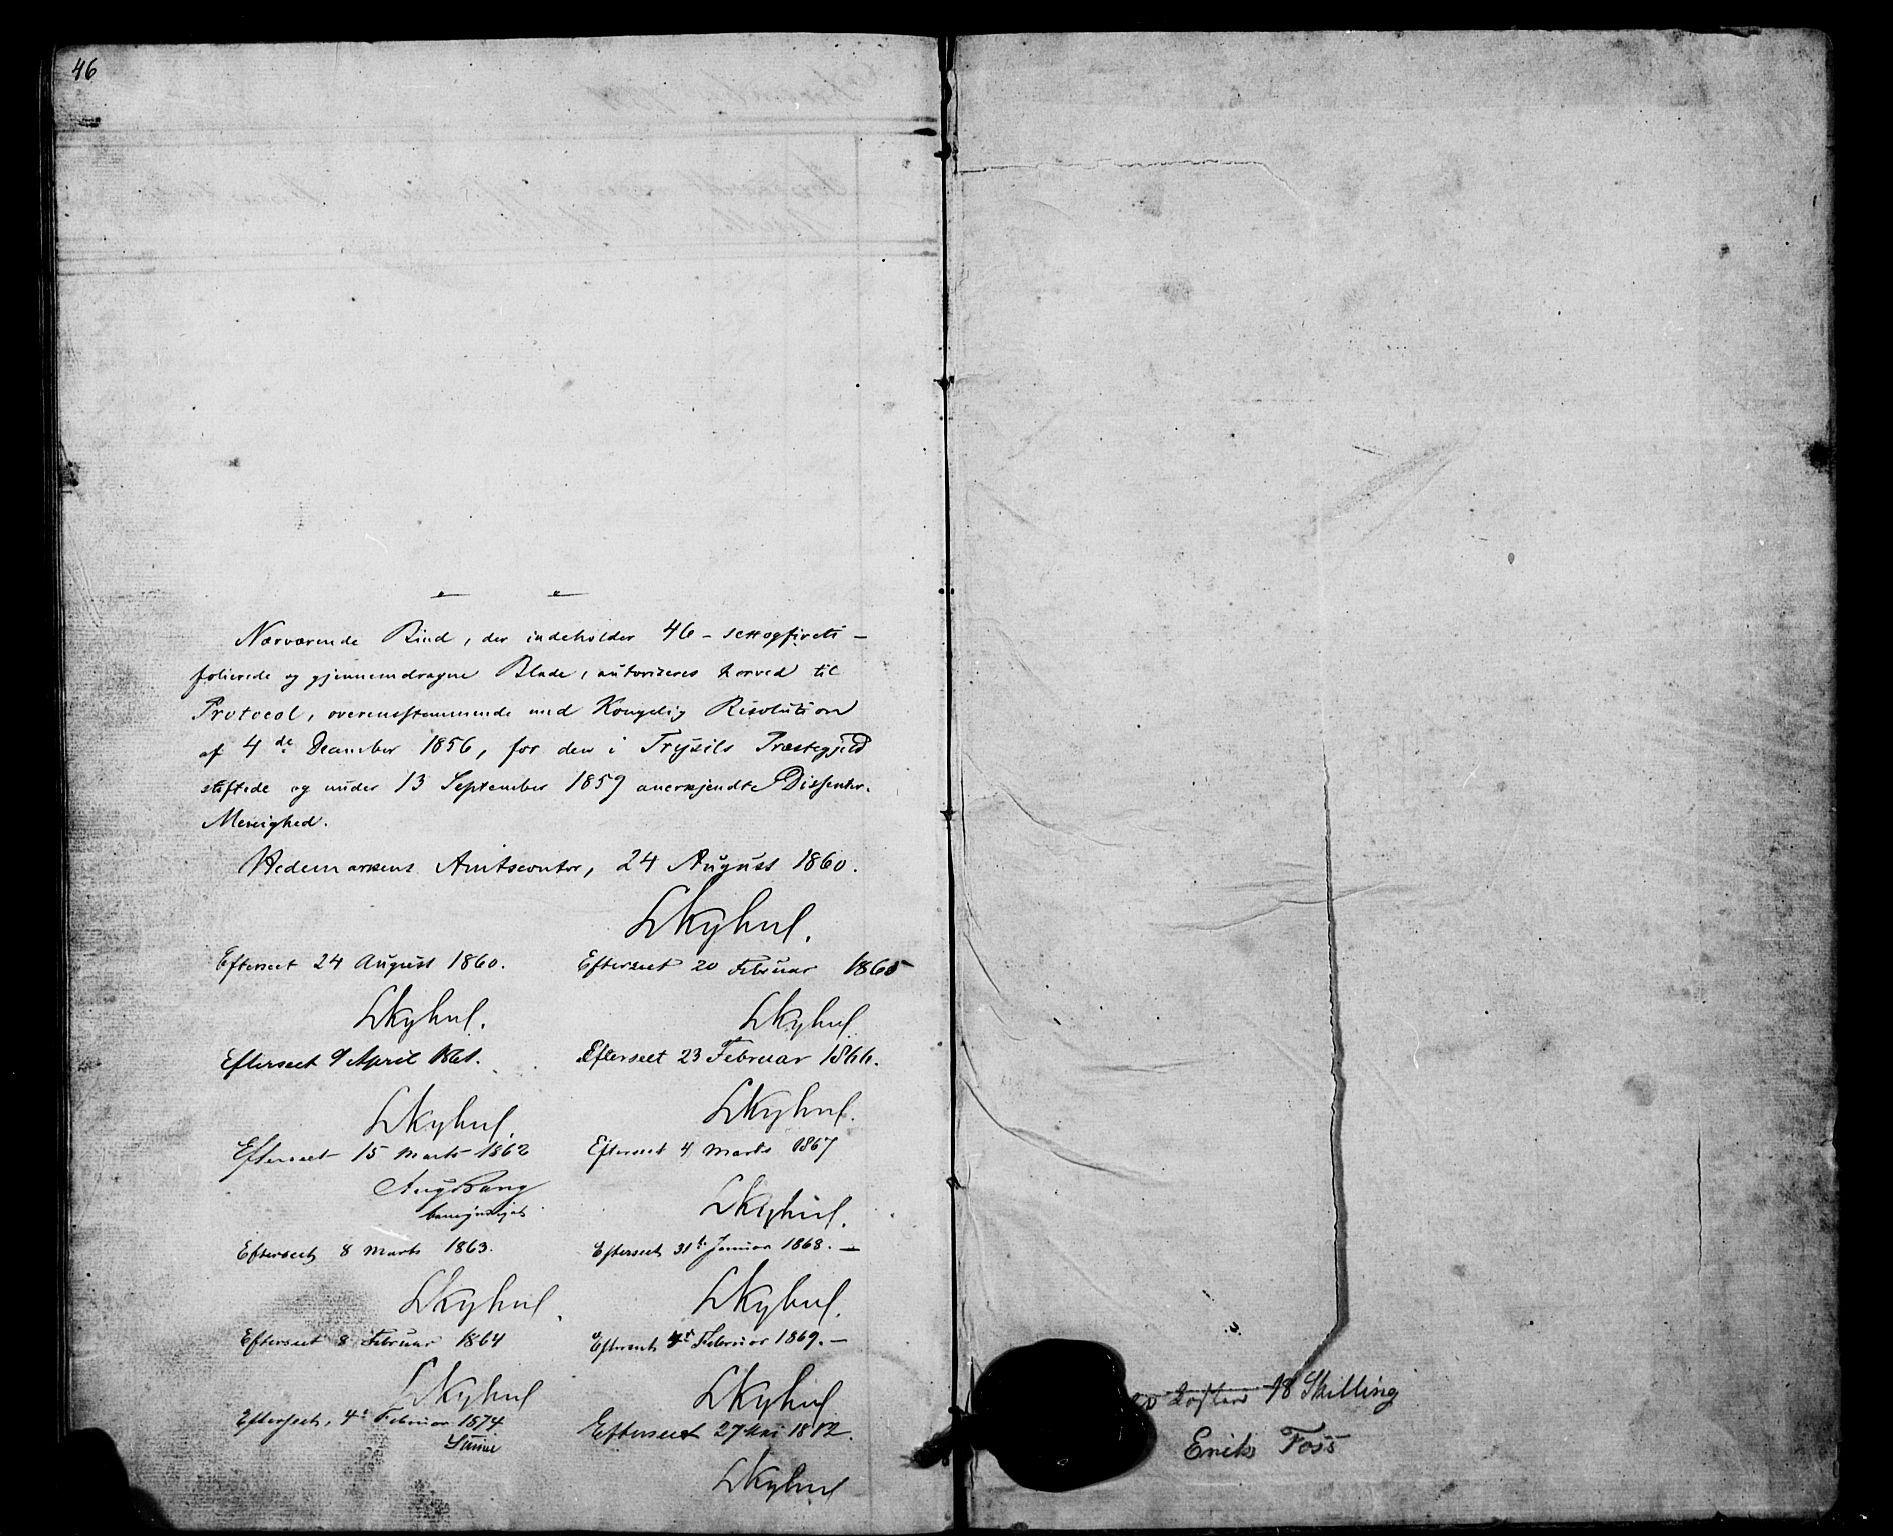 46
Nærværende Bind, der indeholder 46 - sexogfireti -
folierede og gjennemdragne Blade, autoriseres herved til
Protocol, overensstemmende med Kongelig Resolution
af 4de December 1856, for den i Trysils Præstegjeld
stiftede og under 13 September 1859 anerkjendte Dissenter-
Menighed.
Hedemarkens Amtscontor, 24 August 1860.
Efterseet 24 August 1860.
Efterseet 9 April 1861.
Efterseet 15 Marts 1862
Aug Bang
Efterseet 8 Marts 1863.
Efterseet 8 Februar 1864
Efterseet, 4de Februar 1874
Efterseet 20 Februar 1865
Efterseet 23 Februar 1866.
Efterseet 4 Marts 1867
Efterseet 31te Januar 1868. -
Efterseet 4de Februar 1869. -
Efterseet 27 Mai 1872.
koster 18 Skilling
Eriks Foss